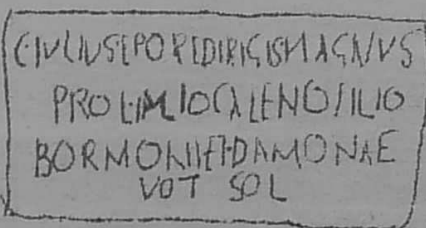 C·IVLIVS EPOREDIRIGIS MAGNVS
PRO L·IVLIO CALENO FILIO
BORMONI ET·DAMONAE
VOT SOL